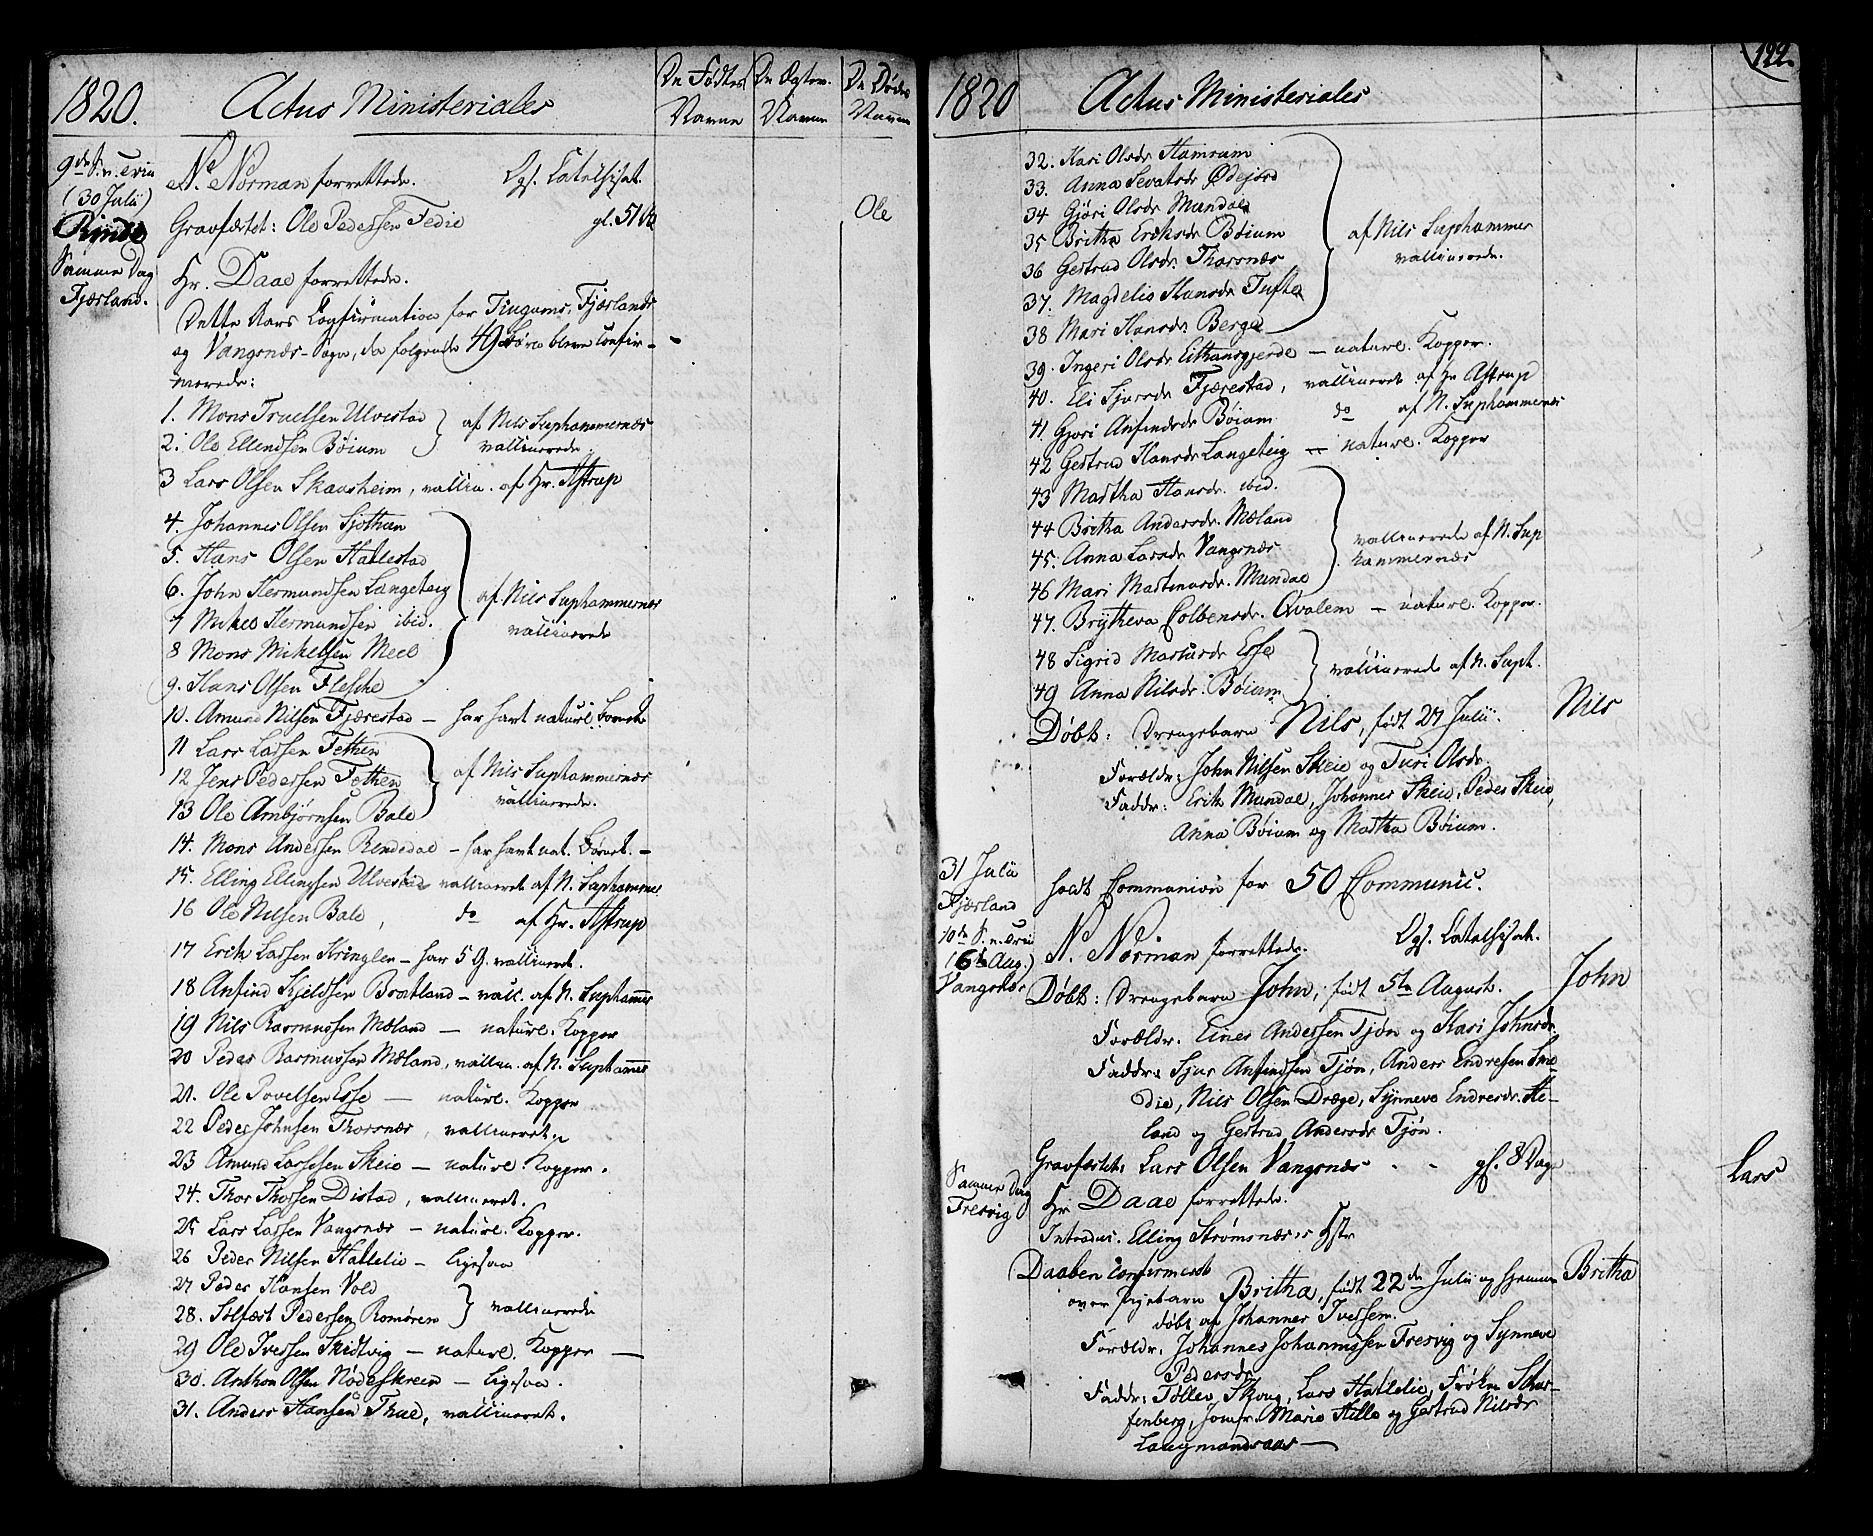 1820. Actus Ministeriales De Fødtes Navne De Ægtev. Navne De Dødes Navne
9de S. n. Trin
(30 Julii)
Rinde
N. Norman forrettede. Lgs. Catechisat.
Gravfæstet: Ole Pedersen Fedie gl. 51 Ole
Samme Dag
Fjærland.
Hr. Daae forrettede.
Dette Aars Confirmation for Tiugums, Fjærlands
og Vangsnæs-Sogn, da følgende 49 Børn bleve Confir-
merede:
1. Mons Truelsen Ulvestad
2. Ole Ellendsen Bøium
af Nils Suphammernæs
vaccinerede.
3 Lars Olsen Skaasheim, vaccin. af Hr. Astrup
4. Johannes Olsen Sjøthun
5. Hans Olsen Hatlestad
6. John Hermundsen Langeteig
7 Mikel Hermundsen ibid.
8 Mons Mikelsen Meel
9. Hans Olsen Flesche
af Nils Suphammernæs
vaccinerede
10. Amund Nilsen Fjærestad - har havt naturl.
11 Lars Larsen Fethen
12 Jens Pedersen Fethen
13 Ole Arnbjørnsen Bale
af Nils Suphammernæs
vaccinerede.
14. Mons Andersen Rendedal - har havt nat. -
15. Elling Ellingsen Ulvestad vaccineret af N. Suphammer
16 Ole Nilsen Bale, do af Hr. Astrup
17 Erik Larsen Kringlen - har 5 G. vaccineret.
18 Anfind Kjeldsen Brætland - vacc. af N. Suphammer
19 Nils Rasmussen Mæland - naturl. Kopper
20 Peder Rasmussen Mæland, vaccin. af N. Suphammer
21. Ole Povelsen Esse - naturl. Kopper
22 Peder Johnsen Thorsnæs, vaccineret.
23 Amund Larsen Skeie - naturl. Kopper.
24. Thor Thorsen Distad, vaccineret.
25 Lars Larsen Vangsnæs - naturl. Kopper.
26 Peder Nilsen Hatlelie - ligesaa
27 Peder Hansen Vold
28. Solfæst Pedersen Romøren
vaccinerede
29 Ole Iversen Skidtvig - naturl. Kopper -
30. Anthon Olsen Nødeskreen - ligesaa.
31. Anders Hansen Thue, vaccineret.
1820 Actus Ministeriales 122.
32. Kari Olsdr Hamrum
33. Anna Sevatsdr Ødejord
34 Gjøri Olsdr Mundal
35 Britha Eriksdr Bøium
36 Gertrud Olsdr. Thorsnæs
37. Magdelis Hansdr Tufte
38 Mari Hansdr. Berge
af Nils Suphammer
vaccinerede.
39. Ingeri Olsdr Eithansgjerde - naturl. Kopper.
40. Eli Sjursdr Fjærestad, vaccineret af Hr Astrup
41 Gjøri Anfindsdr Bøium do af N. Suphammernæs
42 Gertrud Hansdr Langeteig - naturl. Kopper
43 Martha Hansdr. ibid.
44 Britha Andersdr. Mæland
45. Anna Larsdr Vangsnæs
46 Mari Martinusdr. Mundal
vaccinerede af N. Sup
hammernæs
47. Brytheva Colbensdr. Qvalem - naturl. Kopper.
48 Sigrid Martusdr Esse
49 Anna Nilsdr. Bøium
vaccinerede af N. Suph.
Døbt: Drengebarn Nils, født 27 Julii. Nils
Forældr: John Nilsen Skeie og Turi Olsdr.
Faddr: Erik Mundal, Johannes Skeie, Peder Skeie,
Anna Bøium og Martha Bøium.
31 Julii
Fjærland
holdt Communion for 50 Communic.
10de S. n. Trin
(6te Aug.)
Vangsnæs
N. Norman forrettede. Lgs. Catechisat.
Døbt: Drengebarn John, født 5te August. John
Forældr. Einer Andersen Tjøn og Kari Johnsdr.
Faddr: Sjur Anfindsen Tjøn, Anders Endresen Sme-
die, Nils Olsen Dræge, Synneve Endresdr. He-
land og Gertrud Andersdr Tjøn.
Gravfæstet: Lars Olsen Vangsnæs gl. 8 Dage Lars
Samme Dag
Fresvig
Hr. Daae forrettede.
Introduc. Elling Strømsnæs's Hstr
Daaben Confirmeret
over Pigebarn Britha, født 22de Julii og hjemme Britha
døbt af Johannes Iversen.
Forældr. Johannes Johannissen Fresvig og Synneve
Pedersdr
Faddr: Tollev Skoug, Lars Hatlelie, Frøken Schar-
fenberg, Jomfr. Marie Helle og Gertrud Nilsdr
Langmandsaas -